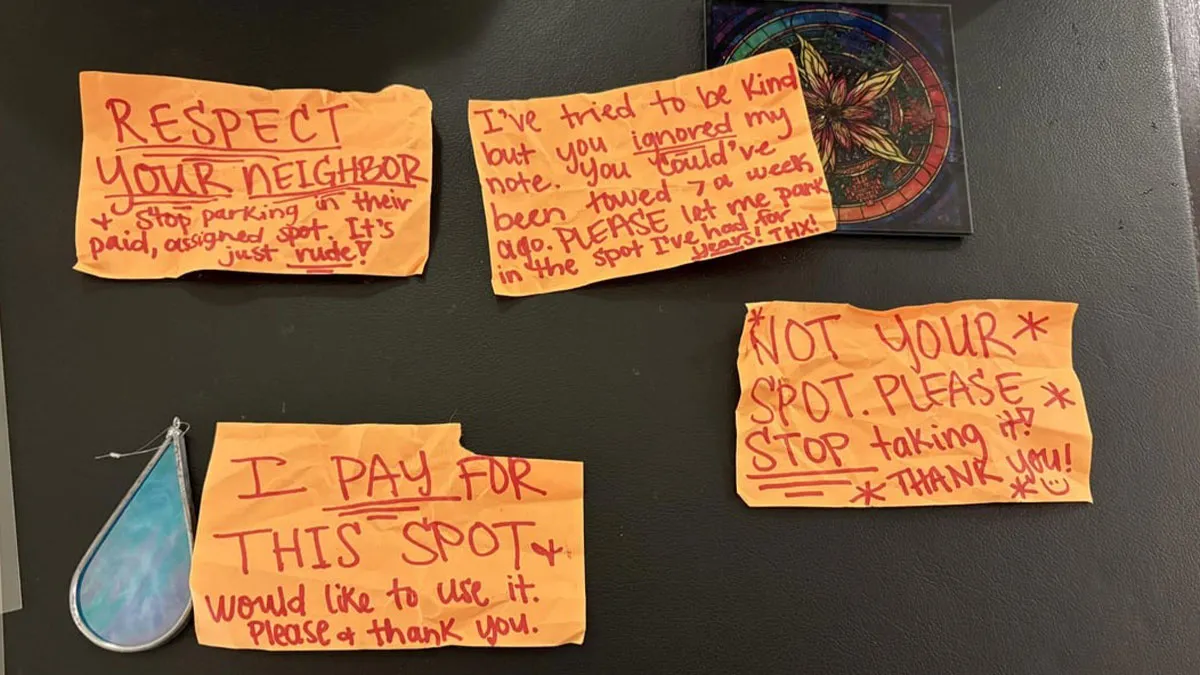 RESPECT
YOUR NEIGHBOR
& Stop parking in their
paid, assigned spot. It's
just rude!
I've tried to be kind
but you ignored my
note. You could've
been towed > a week
ago. PLEASE let me park
in the spot I've had for
years! THX!
*NOT YOUR *
SPOT. PLEASE *
STOP taking it!
* THANK YOU! *
I PAY FOR
THIS SPOT &
would like to use it.
Please & thank you.